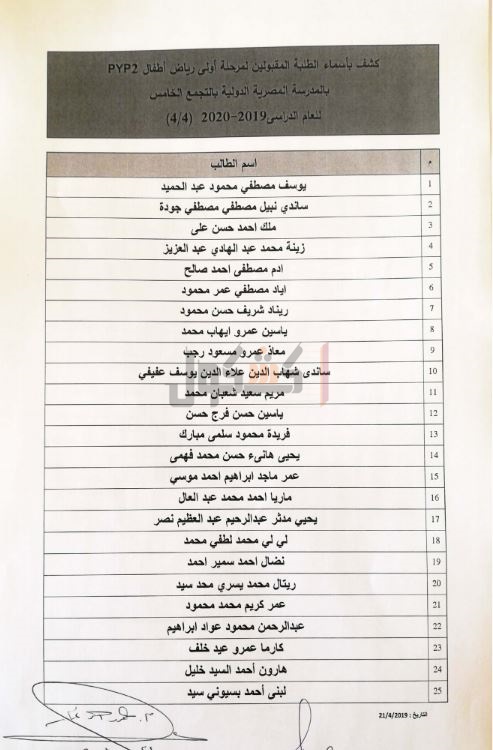 كشف بأسماء الطلبة المقبولين لمرحلة أولى رياض أطفال PYP2
بالمدرسة المصرية الدولية بالتجمع الخامس
للعام الدراسى2019-2020 (4/4)
م اسم الطالب
1 يوسف مصطفي محمود عبد الحميد
2 ساندي نبيل مصطفي مصطفي جودة
3 ملك احمد حسن على
4 زينة محمد عبد الهادي عبد العزيز
5 ادم مصطفى احمد صالح
6 اياد مصطفي عمر محمود
7 ريناد شريف حسن محمود
8 ياسين عمرو ايهاب محمد
9 معاذ عمرو مسعود رجب
10 ساندى شهاب الدين علاء الدين يوسف عفيفي
11 مريم سعيد شعبان محمد
12 ياسين حسن فرج حسن
13 فريدة محمود سلمى مبارك
14 يحيى هانىء حسن محمد فهمى
15 عمر ماجد ابراهيم احمد موسي
16 ماريا احمد محمد عبد العال
17 يحيي مدثر عبدالرحيم عبد العظيم نصر
18 لي لي محمد لطفي محمد
19 نضال احمد سمير احمد
20 ريتال محمد يسري محد سيد
21 عمر كريم محمد محمود
22 عبدالرحمن محمود عواد ابراهيم
23 كارما عمرو عيد خلف
24 هارون أحمد السيد خليل
25 لبنى أحمد بسيوني سيد
التاريخ : 21/4/2019